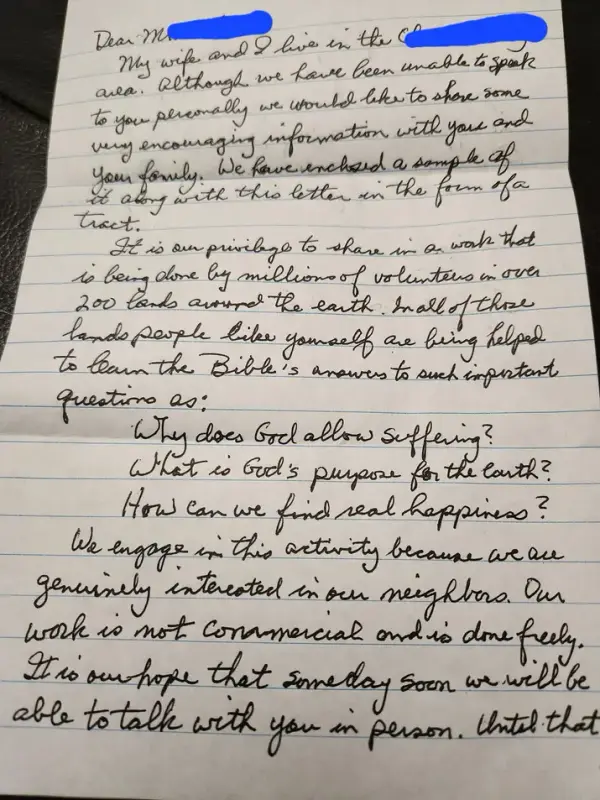 Dear M
My wife and I live in the
area. Although we have been unable to speak
to you personally we would like to share some
very encouraging information with you and
your family. We have enclosed a sample of
it along with this letter in the form of a
tract.
It is our privilege to share in a work that
is being done by millions of volunteers in over
200 lands around the earth. In all of those
lands people like yourself are being helped
to learn the Bible's answers to such important
questions as:
Why does God allow suffering?
What is God's purpose for the earth?
How can we find real happiness?
We engage in this activity because we are
genuinely interested in our neighbors. Our
work is not commercial and is done freely.
It is our hope that someday soon we will be
able to talk with you in person. Until that